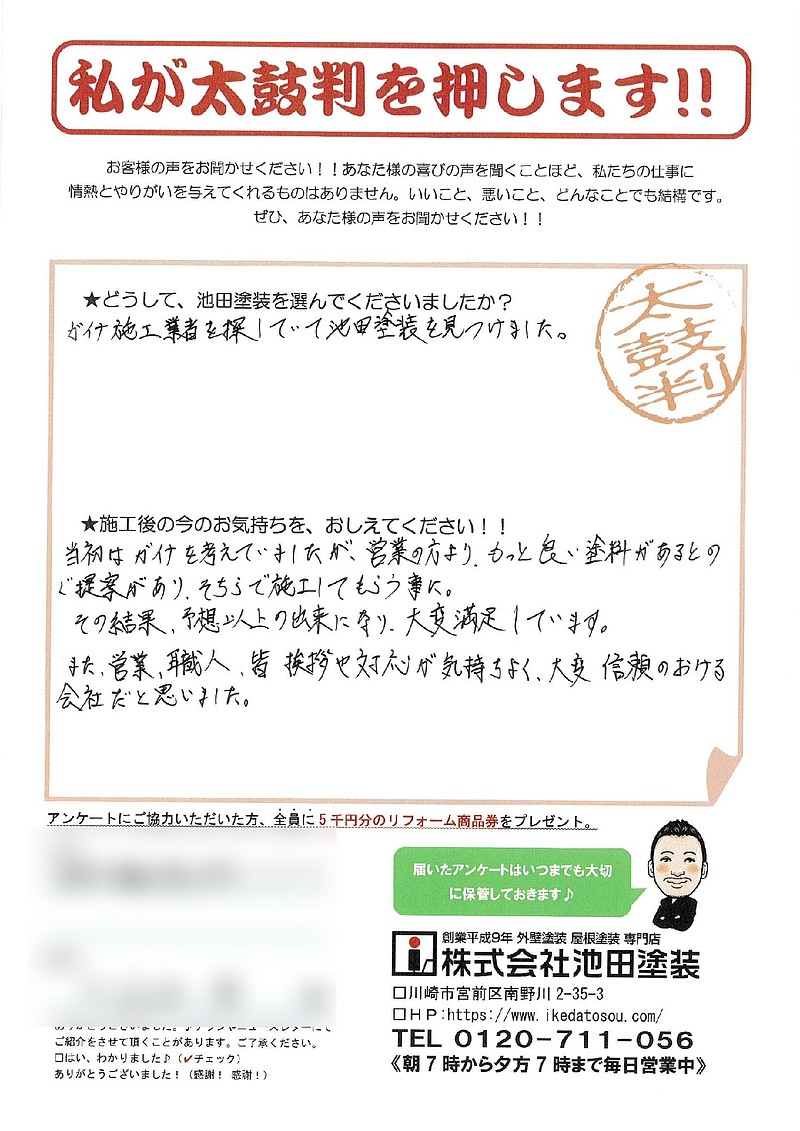 私が太鼓判を押します!!
お客様の声をお聞かせください！！あなた様の喜びの声を聞くことほど、私たちの仕事に
情熱とやりがいを与えてくれるものはありません。いいこと、悪いこと、どんなことでも結構です。
ぜひ、あなた様の声をお聞かせください！！
太鼓判
★どうして、池田塗装を選んでくださいましたか？
ガイナ施工業者を探していて池田塗装を見つけました。
★施工後の今のお気持ちを、おしえてください！！
当初はガイナを考えていましたが、営業の方より、もっと良い塗料があるとの
ご提案があり、そちらで施工してもらう事に。
その結果、予想以上の出来になり、大変満足しています。
また、営業、職人、皆 挨拶や対応が気持ちよく、大変 信頼のおける
会社だと思いました。
アンケートにご協力いただいた方、全員に５千円分のリフォーム商品券をプレゼント。
届いたアンケートはいつまでも大切
に保管しておきます♪
創業平成9年 外壁塗装 屋根塗装 専門店
株式会社池田塗装
□川崎市宮前区南野川 2-35-3
□ＨＰ:https://www.ikedatosou.com/
TEL 0120-711-056
《朝７時から夕方７時まで毎日営業中》
ありがとうございました。チラシやニュースレターにて
ご紹介をさせて頂くことがあります。ご了承ください。
□はい、わかりました♪（✓チェック）
ありがとうございました！（感謝！ 感謝！）